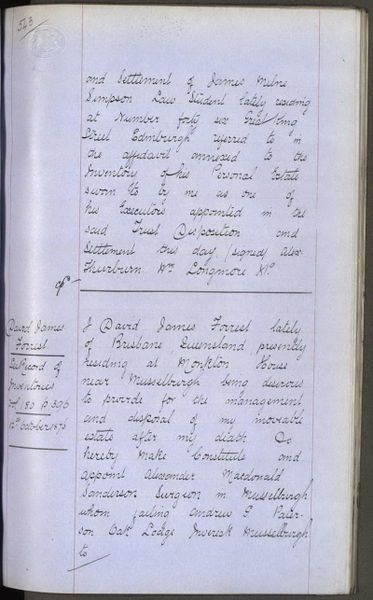 543
and Settlement of James Milne
Simpson Law Student lately residing
at Number forty six Great King
Street Edinburgh referred to in
the affidavit annexed to the
Inventory of his Personal Estate
sworn to by me as one of
his Executors appointed in the
said Trust Disposition and
Settlement this day (signed) Alex.
Thurburn. Wm Longmore J.P.
David James
Forrest
See Record of
Inventories
Vol 180 p 396
12th October 1876
I David James Forrest lately
of Brisbane Queensland presently
residing at Monkton House
near Musselburgh being desirous
to provide for the management
and disposal of my moveable
estate after my death Do
hereby Make Constitute and
appoint Alexander Macdonald
Sanderson Surgeon in Musselburgh
whom failing Andrew F. Pater-
son Oak Lodge Inveresk Musselburgh
to